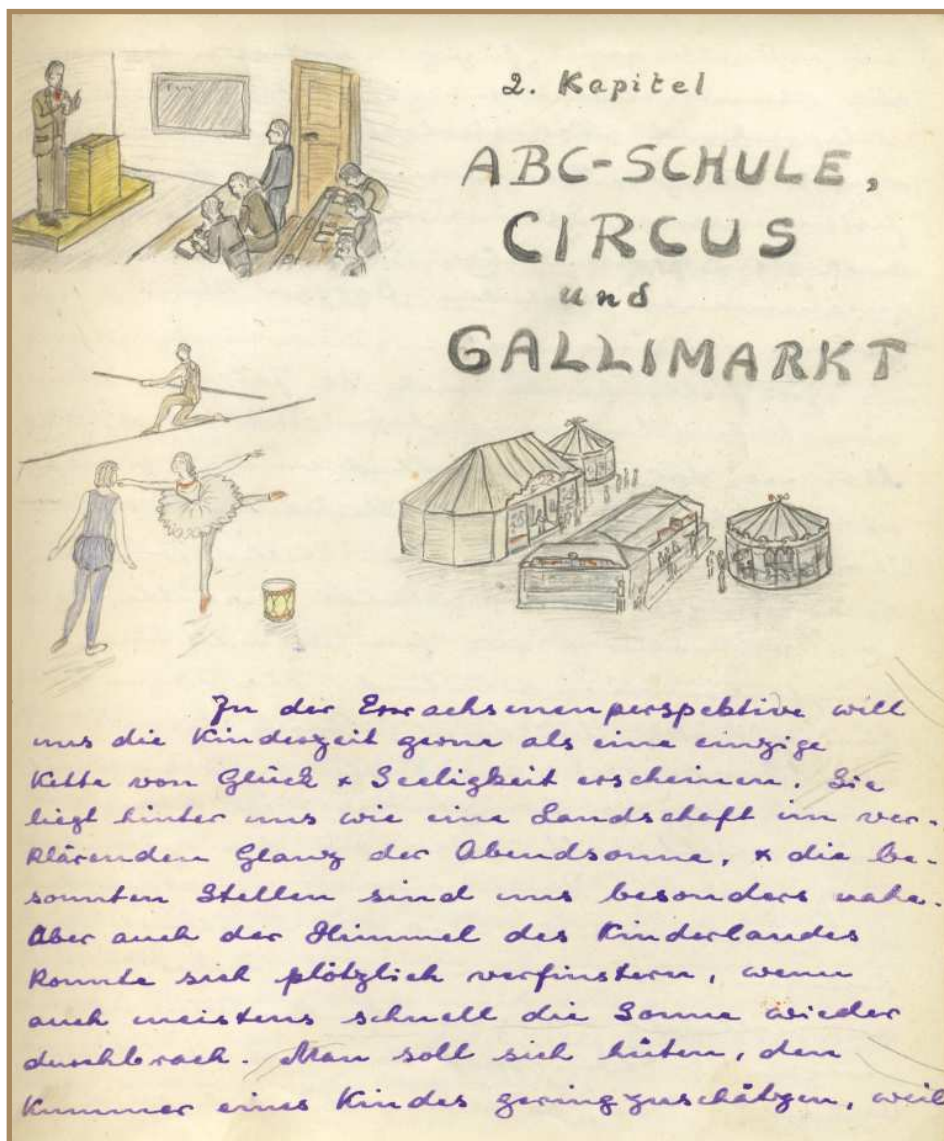 2. Kapitel
ABC-SCHULE,
CIRCUS
und
GALLIMARKT
In der Erwachsenenperspektive will
uns die Kinderzeit gerne als eine einzige
Kette von Glück & Seeligkeit erscheinen. Sie
liegt hinter uns wie eine Landschaft im ver-
klärenden Glanz der Abendsonne, & die be-
sonnten Stellen sind uns besonders nahe.
Aber auch der Himmel des Kinderlandes
konnte sich plötzlich verfinstern, wenn
auch meistens schnell die Sonne wieder
durchbrach. Man soll sich hüten, den
Kummer eines Kindes geringzuschätzen, weil